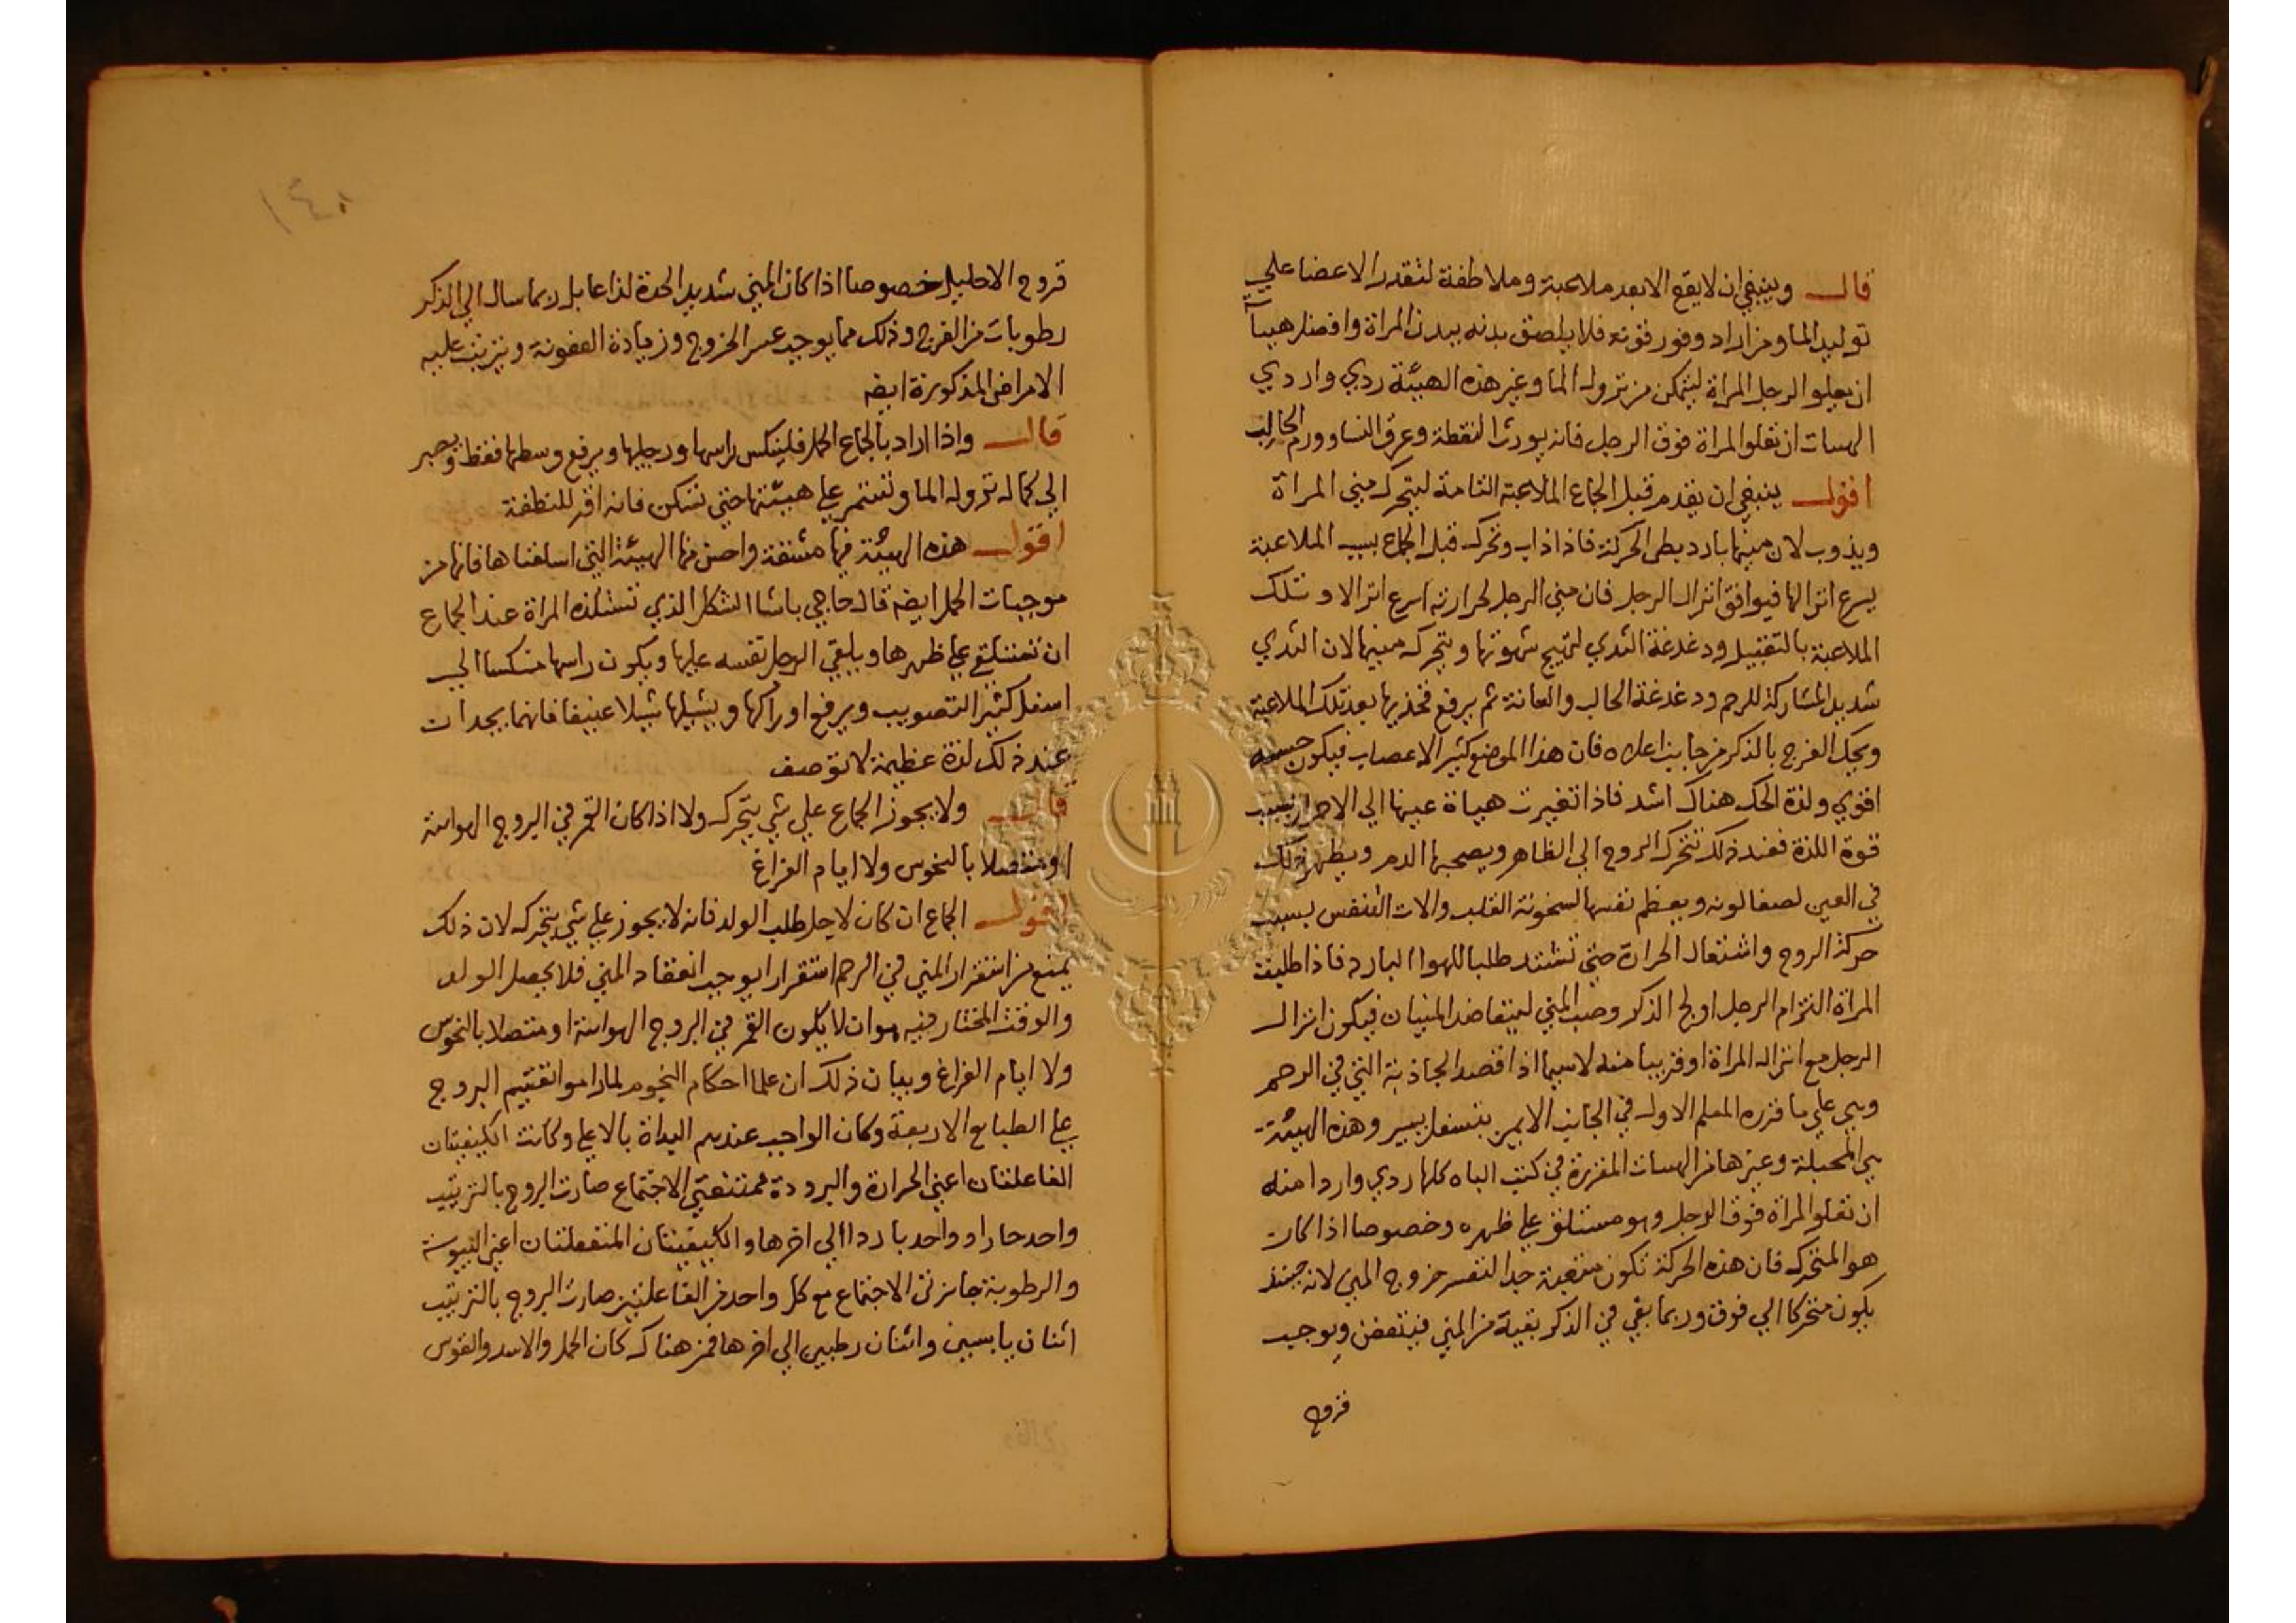 قال وينبغي ان لا يقع الا بعد ملاعبة وملاطفة لتقدر الاعضا علي
توليد الما ومن اراد وفور قوته فلا يلصق بدنه ببدن المراة وافضل هيبآ
ان يعلو الرجل المراة ليتمكن من نزول الما وغير هذه الهيئة ردي واردي
الهيات ان تعلو المراة فوق الرجل فانه يورث النقطة وعرق النسا وورم الحالب
اقول ينبغي ان يقدم قبل الجماع الملاعبة التامة ليتحرك مني المراة
ويذوب لان منيها بارد بطي الحركة فاذا ذاب وتحرك قبل الجماع بسبب الملاعبة
يسرع انزالها فيوافق انزال الرجل فان مني الرجل لحرارته اسرع انزالا وتلك
الملاعبة بالتقبيل ودغدغة الثدي لتهيج شهوتها ويتحرك منيها لان الثدي
شديد المشاركة للرحم ودغدغة الحالب والعانة ثم يرفع فخذيها بعد تلك الملاعبة
ويحك الفرج بالذكر من جانب اعلاه فان هذا الموضع كثير الاعصاب فيكون حسه
اقوي ولذة الحك هناك اشد فاذا تغيرت هياة عينها الي الاحمرار بسبب
قوة اللذة فعند ذلك تتحرك الروح الي الظاهر ويصحبها الدم ويظهر ذلك
في العين لصفا لونه ويعظم نفسها لسخونة القلب والات التنفس بسبب
حركة الروح واشتعال الحرارة حتي تشتد طلبا للهوا البارد فاذا طلبت
المراة التزام الرجل اولج الذكر وصب المني ليتعاضد المنيان فيكون انزال
الرجل مع انزال المراة او قريبا منه لاسيما اذا قصد الجاذبة التي في الرحم
وهي علي ما قرره المعلم الاول في الجانب الايمن بتسفل يسير وهذه الهيئة
هي المحبلة وغيرها من الهيات المقررة في كتب الباه كلها ردي واردا منه
ان تعلو المراة فوق الرجل وهو مستلق علي ظهره وخصوصا اذا كان
هو المتحرك فان هذه الحركة تكون متعبة جدا لتعسر خروج المني لانه حينئذ
يكون متحركا الي فوق وربما بقي في الذكر بقية من المني فيتعفن ويوجب
قروح
١٤٠
قروح الاحليل خصوصا اذا كان المني شديد الحدة لذاعا بل ربما سال الي الذكر
رطوبات من الفرج وذلك مما يوجب عسر الخروج وزيادة العفونة ويترتب عليه
الامراض المذكورة ايضه
قال واذا اراد بالجماع الحمل فلينكس راسها ورجليها ويرفع وسطها فقط ويصبر
الي كمال نزول الما وتستمر علي هيئتها حتي تسكن فانه اقر للنطفة
اقول هذه الهيئة فيها مشقة واحسن منها الهيئة التي اسلفناها فانها من
موجبات الحمل ايضه قال حاجي باشا الشكل الذي تستلذه المراة عند الجماع
ان تستلقي علي ظهرها ويلقي الرجل نفسه عليها ويكون راسها منكسا الي
اسفل كثير التصويب ويرفع اوراكها ويشيلها شيلا عنيفا فانهما يجدان
عند ذلك لذة عظيمة لا توصف
قال ولا يجوز الجماع علي شي يتحرك ولا اذا كان القمر في البروج الهوايية
او متصلا بالنحوس ولا ايام الفراغ
اقول الجماع ان كان لاجل طلب الولد فانه لا يجوز علي شي يتحرك لان ذلك
يمنع من استقرار المني في الرحم استقرارا يوجب انعقاد المني فلا يحصل الولد
والوقت المختار فيه هوان لا يكون القمر في البروج الهوايية او متصلا بالنحوس
ولا ايام الفراغ وبيان ذلك ان علما احكام النجوم لما راموا تقسيم البروج
علي الطبايع الاربعة وكان الواجب عندهم البداة بالاعلي وكانت الكيفيتان
الفاعلتان اعني الحرارة والبرودة ممتنعتي الاجتماع صارت البروج بالترتيب
واحد حارا وواحد باردا الي اخرها والكيفيتان المنفعلتان اعني اليبوسة
والرطوبة جايزتي الاجتماع مع كل واحد من الفاعلتين صارت البروج بالترتيب
اثنان يابسين واثنان رطبين الي اخرها فمن هناك كان الحمل والاسد والقوس